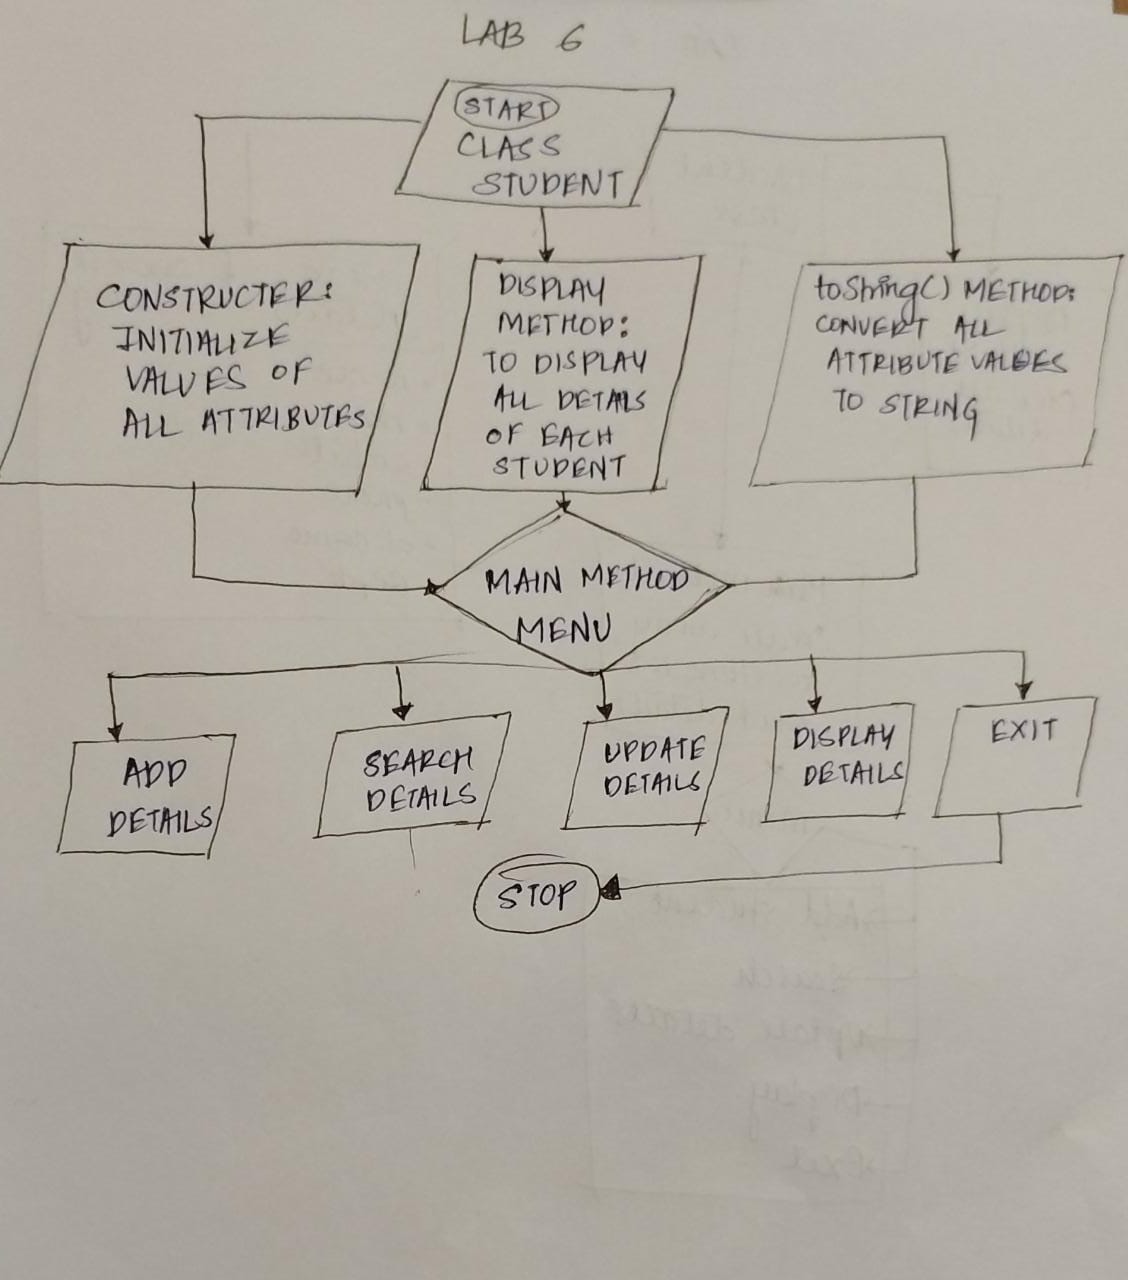 LAB 6
START
CLASS
STUDENT
CONSTRUCTER:
INITIALIZE
VALUES OF
ALL ATTRIBUTES
DISPLAY
METHOD:
TO DISPLAY
ALL DETAILS
OF EACH
STUDENT
toString() METHOD:
CONVERT ALL
ATTRIBUTE VALUES
TO STRING
MAIN METHOD
MENU
ADD
DETAILS
SEARCH
DETAILS
UPDATE
DETAILS
DISPLAY
DETAILS
EXIT
STOP